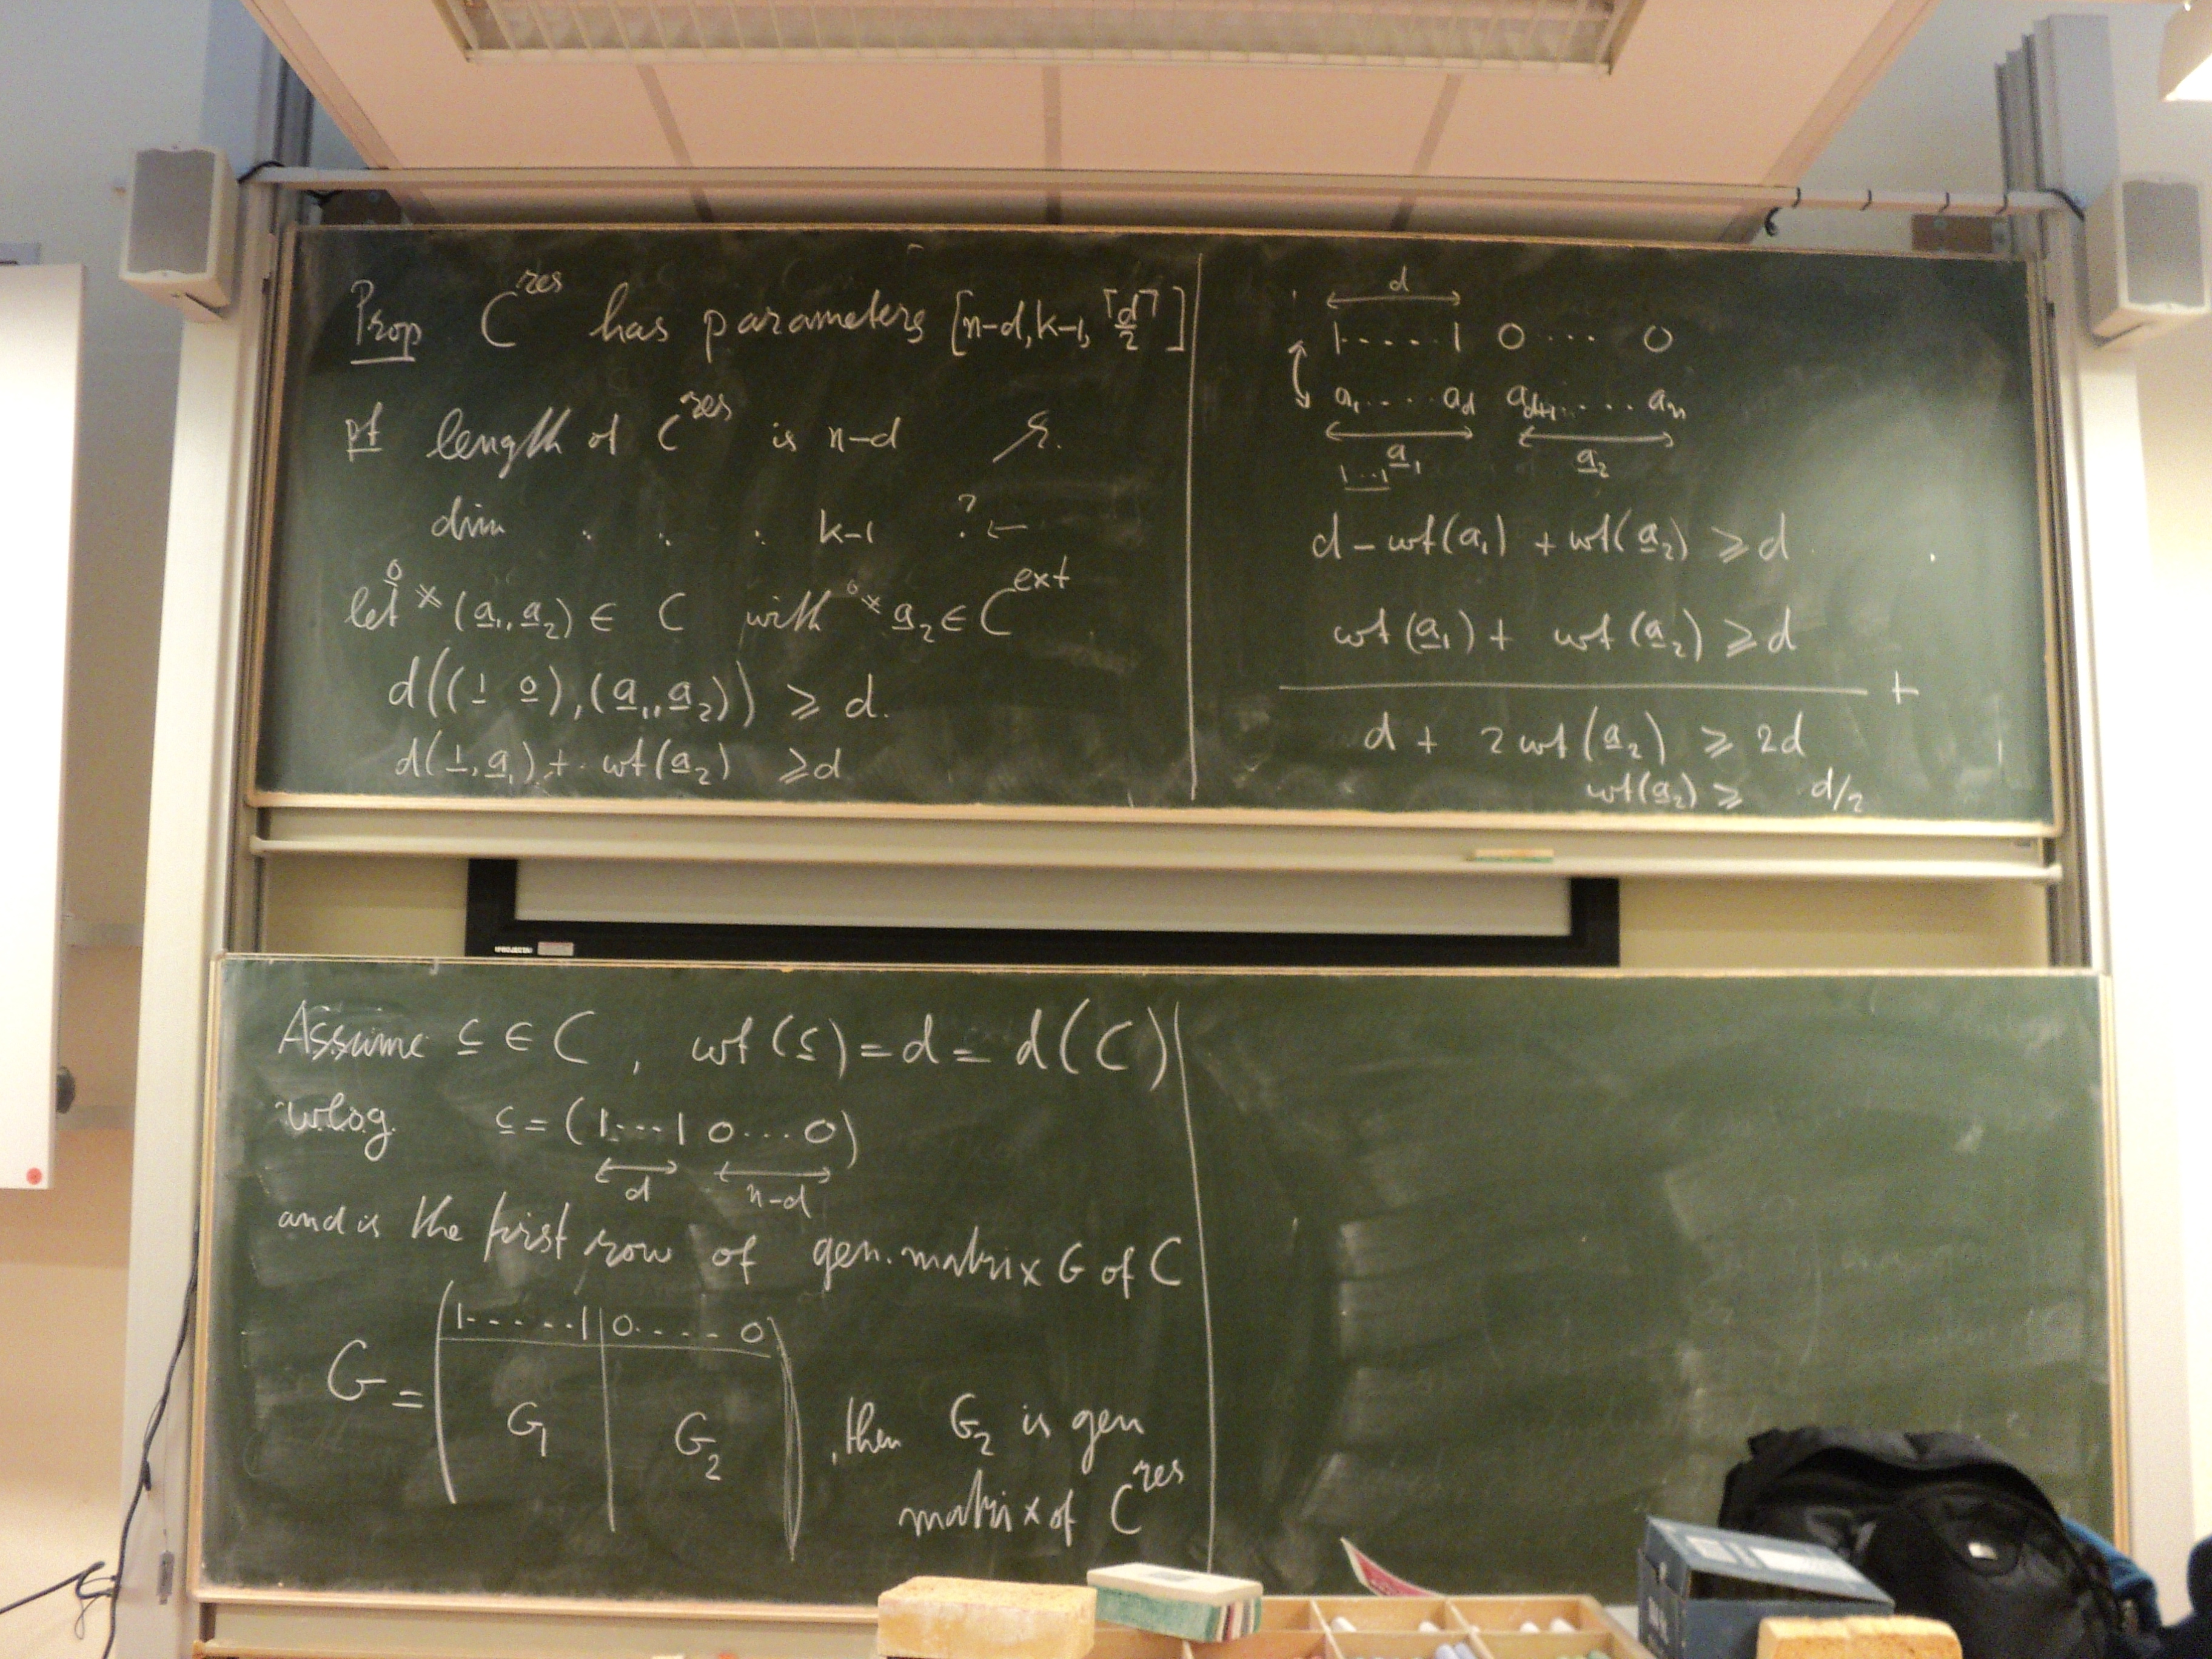 Prop C^res has parameters [n-d, k-1, ⌈d/2⌉]
pf length of C^res is n-d
dim . . . k-1 ? ←
let 0 ≠ (a₁, a₂) ∈ C with 0 ≠ a₂ ∈ C^ext
d((1 0), (a₁, a₂)) ⩾ d.
d(1, a₁) + wt(a₂) ⩾ d
d
1....1 0 ... 0
a₁....a_d a_{d+1}....a_n
a₁ a₂
1...1
d - wt(a₁) + wt(a₂) ⩾ d
wt(a₁) + wt(a₂) ⩾ d
+
d + 2wt(a₂) ⩾ 2d
wt(a₂) ⩾ d/2
PROJECTA
Assume c ∈ C, wt(c) = d = d(C)
wlog. c = (1...1 0...0)
d n-d
and is the first row of gen. matrix G of C
1-----1 0---- 0
G = ( G₁ | G₂ ), then G₂ is gen
matrix of C^res